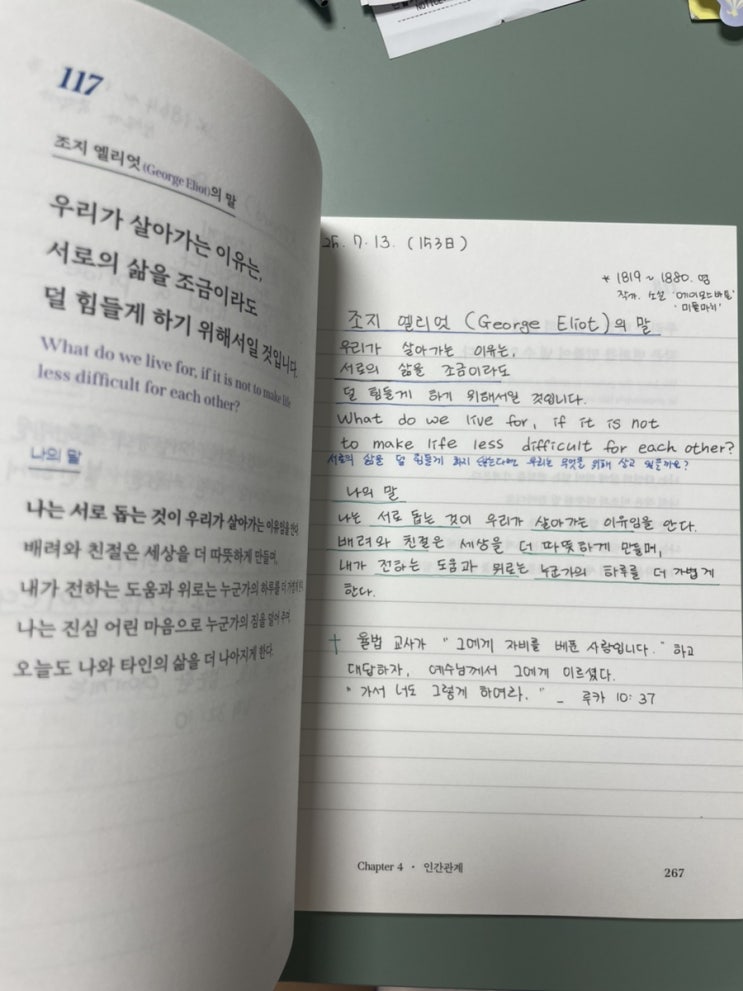 NOTICE
117
조지 엘리엇(George Eliot)의 말
우리가 살아가는 이유는,
서로의 삶을 조금이라도
덜 힘들게 하기 위해서일 것입니다.
What do we live for, if it is not to make life
less difficult for each other?
나의 말
나는 서로 돕는 것이 우리가 살아가는 이유임을 안다.
배려와 친절은 세상을 더 따뜻하게 만들며,
내가 전하는 도움과 위로는 누군가의 하루를 더 가볍게 한다.
나는 진심 어린 마음으로 누군가의 짐을 덜어 주며,
오늘도 나와 타인의 삶을 더 나아지게 한다.
25. 7. 13. (153日)
* 1819 ~ 1880. 영
작가. 소설 '에이모스바튼'
'미들마치'
조지 엘리엇 (George Eliot)의 말
우리가 살아가는 이유는,
서로의 삶을 조금이라도
덜 힘들게 하기 위해서일 것입니다.
What do we live for, if it is not
to make life less difficult for each other?
서로의 삶을 덜 힘들게 하지 않는다면 우리는 무엇을 위해 살고 있을까요?
나의 말
나는 서로 돕는 것이 우리가 살아가는 이유임을 안다.
배려와 친절은 세상을 더 따뜻하게 만들며,
내가 전하는 도움과 위로는 누군가의 하루를 더 가볍게
한다.
† 율법 교사가 "그에게 자비를 베푼 사람입니다." 하고
대답하자, 예수님께서 그에게 이르셨다.
"가서 너도 그렇게 하여라." _ 루카 10: 37
Chapter 4 · 인간관계
267